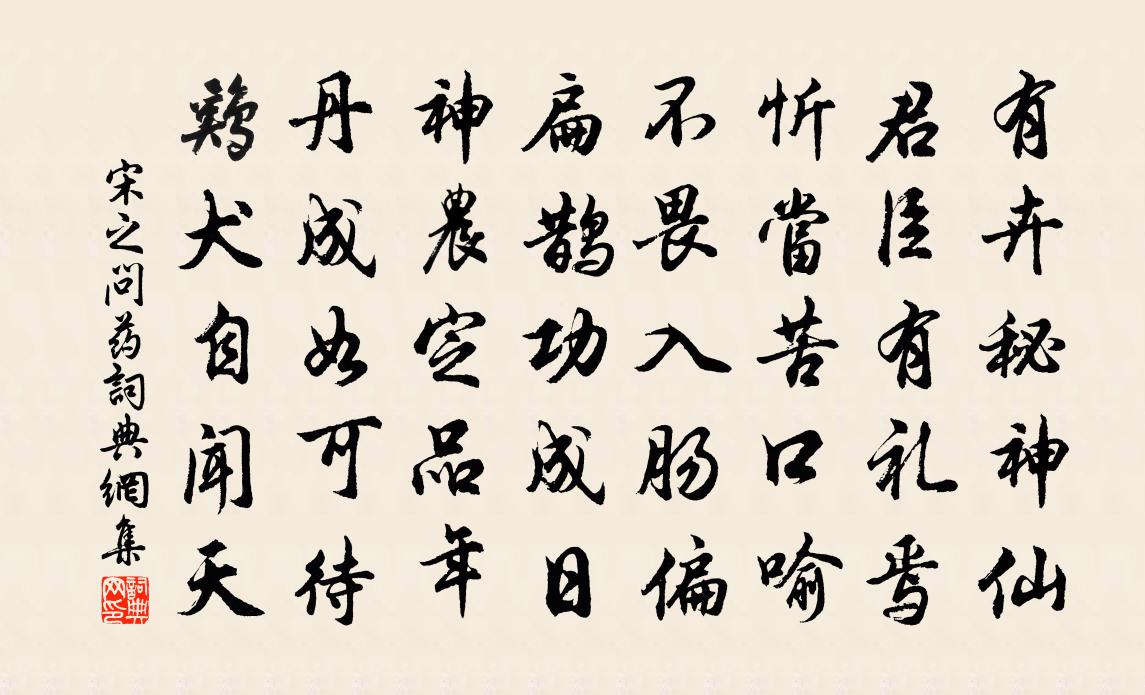 有卉秘神仙
君臣有礼焉
忻當苦口喻
不畏入肠偏
扁鵲功成日
神農定品年
丹成如可待
鷄犬自闻天
宋之问药詞典網集
詞典網印